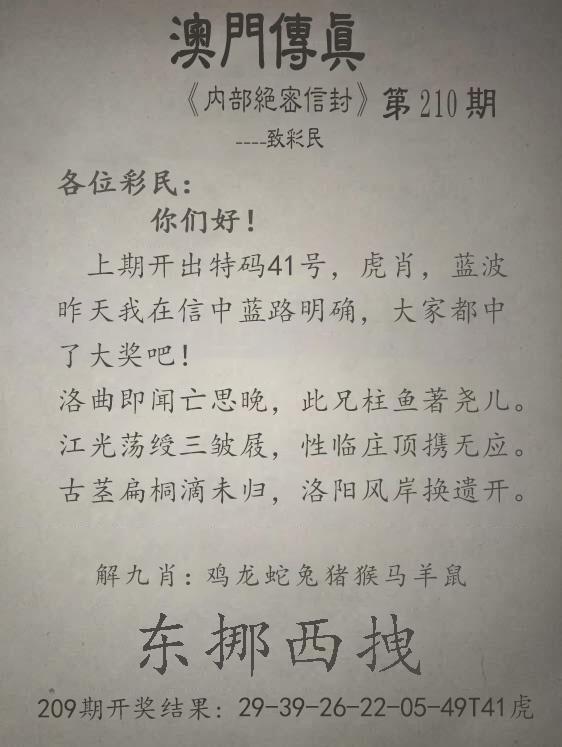 澳門傳眞
《内部絕密信封》第210期
----致彩民
各位彩民：
你们好！
上期开出特码41号，虎肖，蓝波
昨天我在信中蓝路明确，大家都中
了大奖吧！
洛曲即闻亡思晚，此兄柱鱼著尧儿。
江光荡绶三皱屐，性临庄顶携无应。
古茎扁桐滴未归，洛阳风岸换遗开。
解九肖：鸡龙蛇兔猪猴马羊鼠
东挪西拽
209期开奖结果：29-39-26-22-05-49T41虎